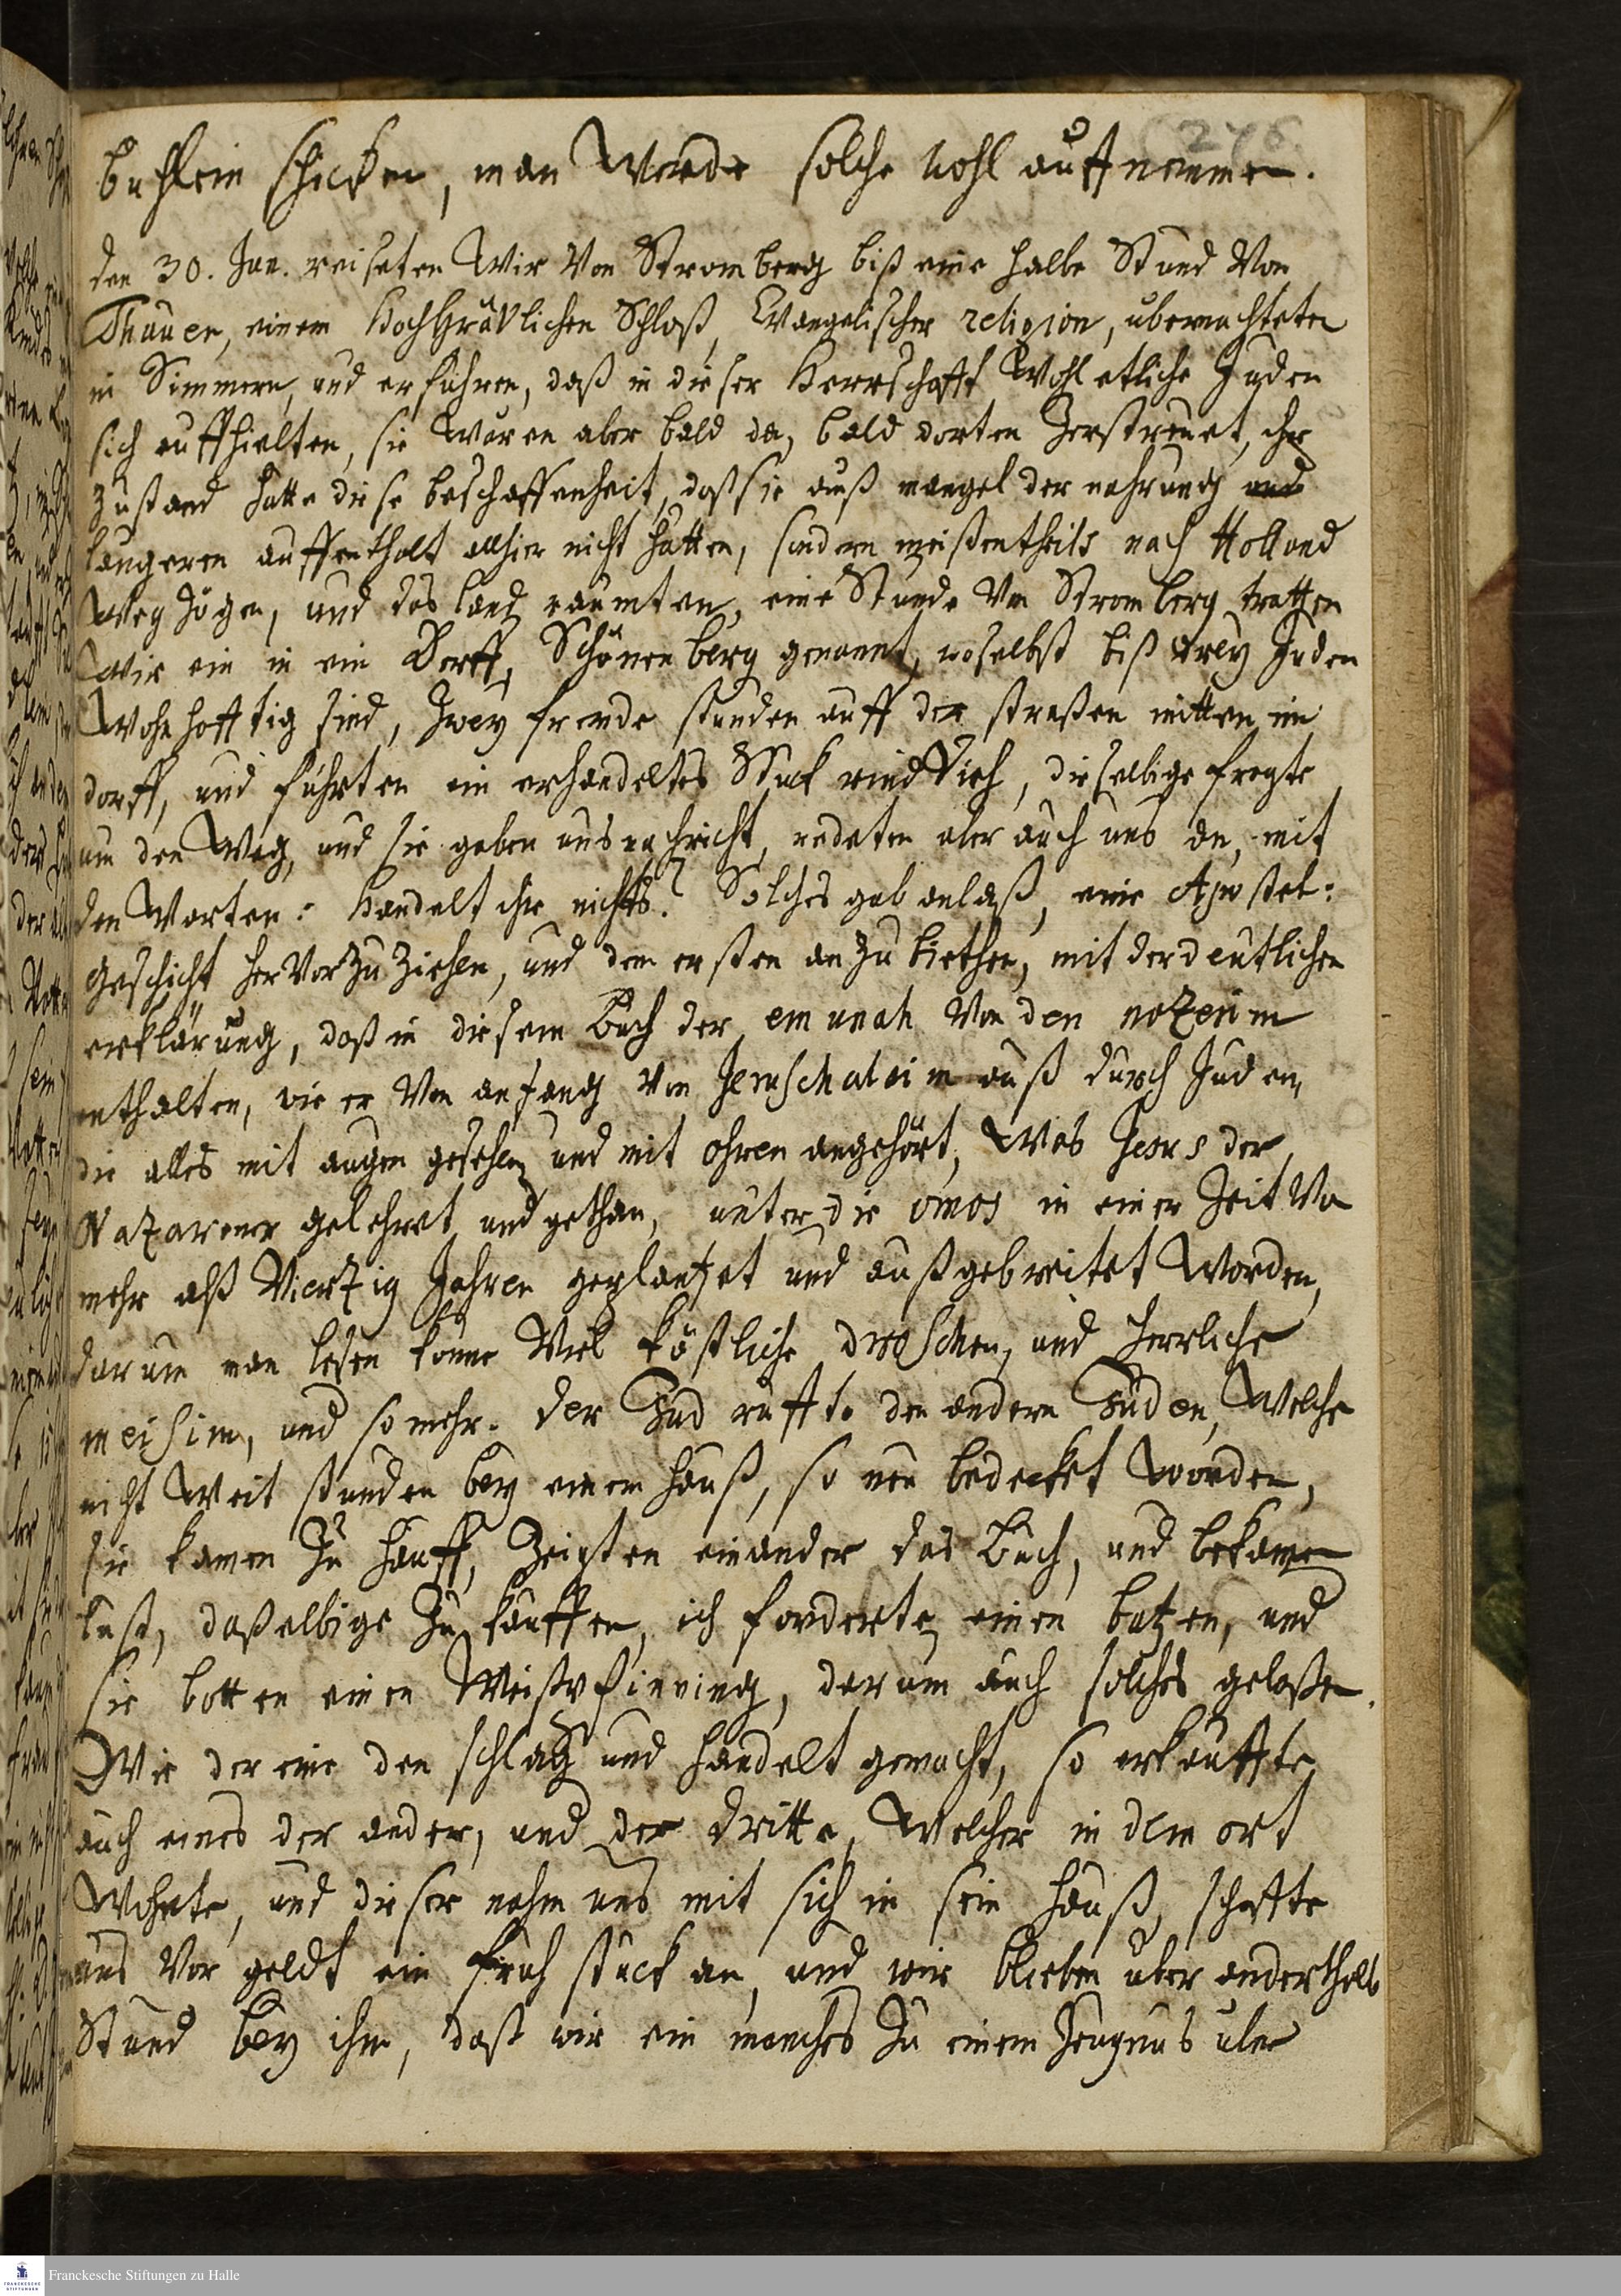 276
buchlein schicken, man Werde solche wohl auffnemmen.
den 30. Jun. reiseten Wir Von Stromberg biß eine halbe Stund Von
Thauen, einem HochGrävlichen Schloß, Evangelischer religion, übernachteten
in Simmern, und erfuhren, daß in dieser Herrschafft Wohl etliche Juden
sich auffhielten, sie Waren aber bald da, bald dorten Zerstreuet, ihr
Zustand hatte diese beschaffenheit, daß sie auß mangel der nahrung
längeren auffenthalt allhier nicht hatten, sondern meistentheils nach Holland
Weg Zögen, und das land raumten, eine Stunde Von Stromberg tratten
Wir ein in ein Dorff, Schönenberg genannt, woselbst biß drey Juden
Wohnhafftig sind, Zwey fremde stunden auff der straßen mitten im
dorff, und führten ein erhandeltes Stuck rindVieh, dieselbige fragte
um den Weg, und sie gaben uns nachricht, redeten aber auch uns an, mit
den Worten: Handelt ihr nichts? Solches gab anlaß, eine Apostel:
Geschicht herVorZuZiehen, und dem ersten anZubiethen, mit der deutlichen
erklärung, daß in diesem Buch der emunah Von den nozerim
enthalten, wie er Von anfang Von Jeruschalaim auß durch Juden,
die alles mit augen gesehen und mit ohren angehört, Was Jesus der
Nazarener gelehret und gethan, unter die omos in einer Zeit Von
mehr alß Vierzig Jahren geplantzet und außgebreitet Worden,
darum man lesen könne Viel köstliche droschen, und herrliche
meisim, und so mehr. Der Jud ruffte den andern Juden, Welche
nicht Weit stunden bey einem hauß, so neu bedecket worden,
sie kamen Zu hauff, Zeigten einander das Buch, und bekamen
lust, daßelbige Zu kauffen, ich forderte einen batzen, und
sie botten einen Weißpfinning, darum auch solches gelaßen.
Wie der eine den schlag und handelt gemacht, so erkauffte
auch eines der ander, und der dritte, Welcher in dem ort
Wohnte, und dieser nahm uns mit sich in sein hauß, schaffte
uns Vor geldt ein fruhstuck an, und wir blieben uber anderthalb
Stund bey ihm, daß wir ein manches Zu einem Zeugnus uber
Franckesche Stiftungen zu Halle